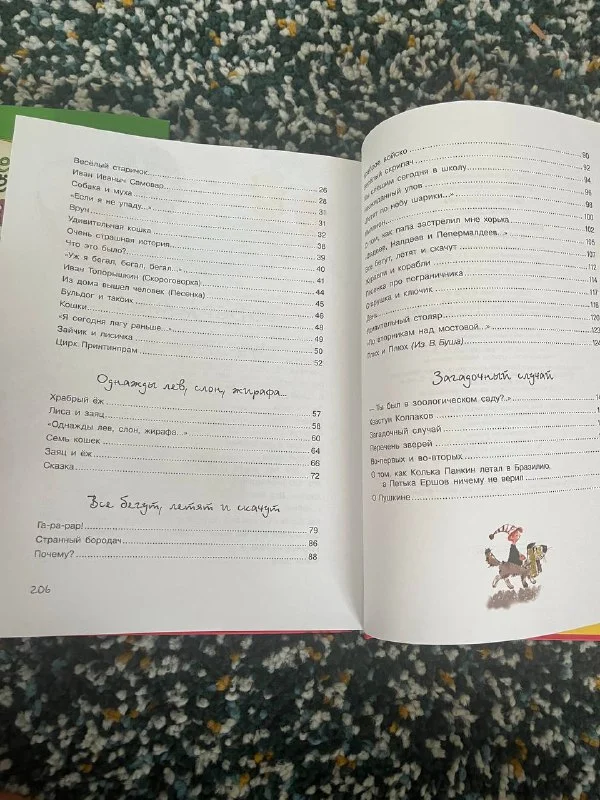 Веселый старичок 26
Иван Иваныч Самовар 28
Собака и муха 31
«Если я не упаду...» 31
Врун 32
Удивительная кошка 36
Очень страшная история 38
Что это было? 39
«Уж я бегал, бегал, бегал...» 40
Иван Топорышкин (Скороговорка) 41
Из дома вышел человек (Песенка) 44
Бульдог и таксик 45
Кошки 46
«Я сегодня лягу раньше...» 48
Зайчик и лисичка 49
Цирк Принтинпрам 50
52
Однажды лев, слон, жирафа...
Храбрый ёж 57
Лиса и заяц 58
«Однажды лев, слон, жирафа...» 60
Семь кошек 64
Заяц и ёж 66
Сказка 72
Все бегут, летят и скачут
Га-ра-рар! 79
Странный бородач 86
Почему? 88
206
войско 90
скрипач 92
спешим сегодня в школу 94
улов 96
по небу шарики...» 98
100
О том, как папа застрелил мне хорька 102
Лапдеев и Пепермалдеев...» 106
бегут, летят и скачут 107
и корабли 112
Песенка про пограничника 114
Старушка и ключик 116
День 117
Удивительный столяр 120
«По вторникам над мостовой...» 123
Плюх (Из В. Буша)
Загадочный случай
— Ты был в зоологическом саду?..»
Колпаков
Загадочный случай
Перечень зверей
Во-первых и во-вторых
О том, как Колька Панкин летал в Бразилию,
а Петька Ершов ничему не верил
О Пушкине